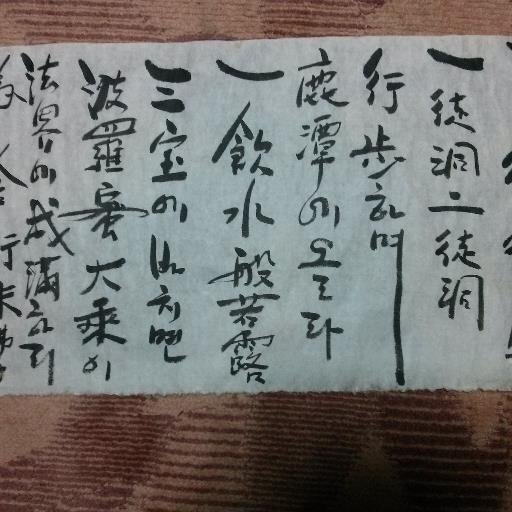 一徒洞二徒洞
行步하며
鹿潭에오르라
一飮水般若露
三宝에바치면
波羅蜜大乘이
法界에成滿하리